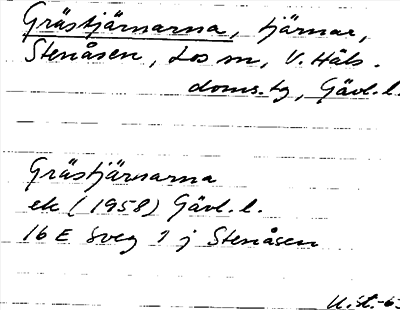 Grästjärnarna, tjärnar,
Stenåsen, Los sn, V. Häls.
doms.tg, Gävl.l.
Grästjärnarna
ek (1958) Gävl.l.
16 E Sveg 1 j Stenåsen
U.st.-63